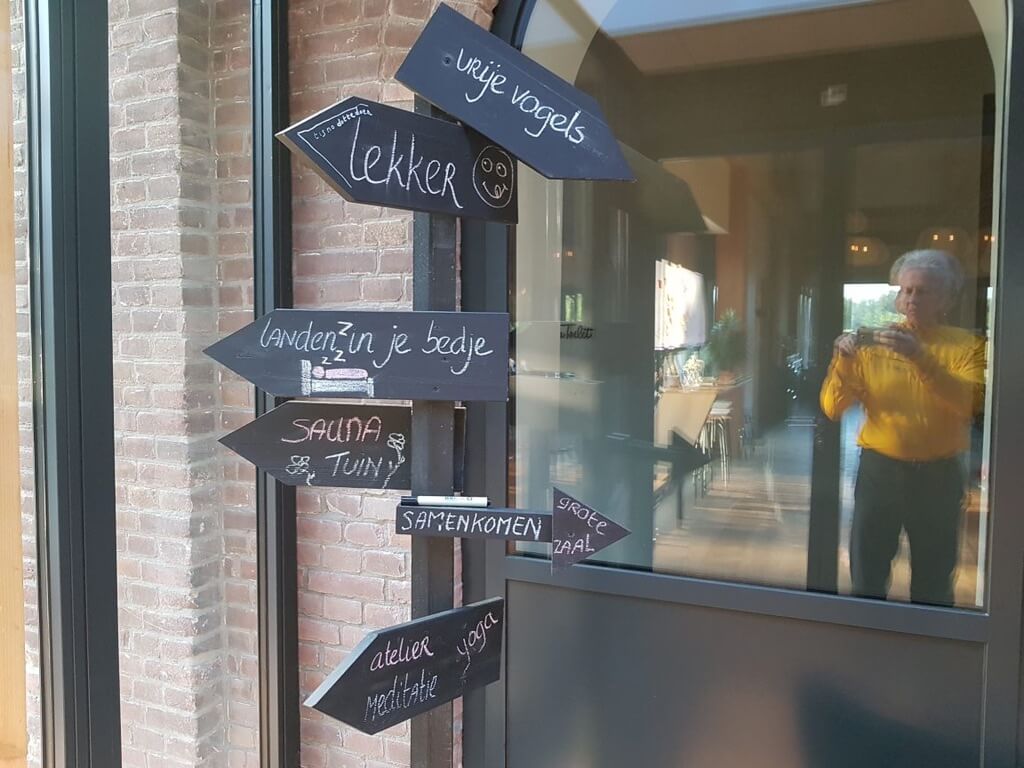 vrije vogels
lekker
landen in je bedje
z z z
SAUNA
TUIN
SAMENKOMEN
grote
ZAAL
atelier yoga
meditatie